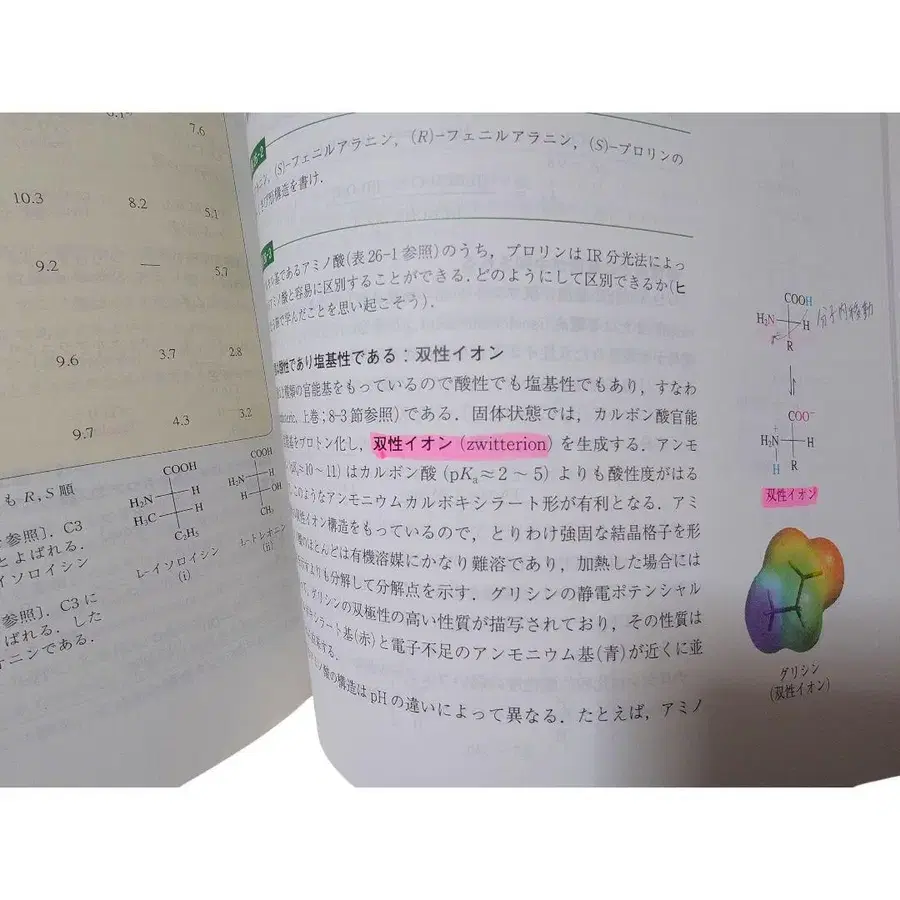 7.6
10.3 8.2 5.1
9.2 — 5.7
9.6 3.7 2.8
9.7 4.3 3.2
も R, S 順
参照〕. C3
とよばれる.
イソロイシン
参照〕. C3 に
ばれる. した
ニンである.
COOH
H₂N H
H₃C H
C₂H₅
L-イソロイシン
(i)
COOH
H₂N H
H OH
CH₃
L-トレオニン
(ii)
26-2
(S)-フェニルアラニン, (R)-フェニルアラニン, (S)-プロリンの
構造を書け.
基であるアミノ酸(表 26-1 参照)のうち, プロリンは IR 分光法によっ
アミノ酸と容易に区別することができる. どのようにして区別できるか(ヒ
で学んだことを思い起こそう).
酸性であり塩基性である：双性イオン
種類の官能基をもっているので酸性でも塩基性でもあり, すなわ
上巻；8-3 節参照)である. 固体状態では, カルボン酸官能
基をプロトン化し, 双性イオン(zwitterion)を生成する. アンモ
≈10～11)はカルボン酸 (pKa≈2～5) よりも酸性度がはる
このようなアンモニウムカルボキシラート形が有利となる. アミ
性イオン構造をもっているので, とりわけ強固な結晶格子を形
のほとんどは有機溶媒にかなり難溶であり, 加熱した場合には
よりも分解して分解点を示す. グリシンの静電ポテンシャル
グリシンの双極性の高い性質が描写されており, その性質は
シラート基(赤)と電子不足のアンモニウム基(青)が近くに並
する.
ミノ酸の構造は pH の違いによって異なる. たとえば, アミノ
COOH
H₂N H 分子内移動
R
COO⁻
H₂N⁺ H
H R
双性イオン
グリシン
(双性イオン)